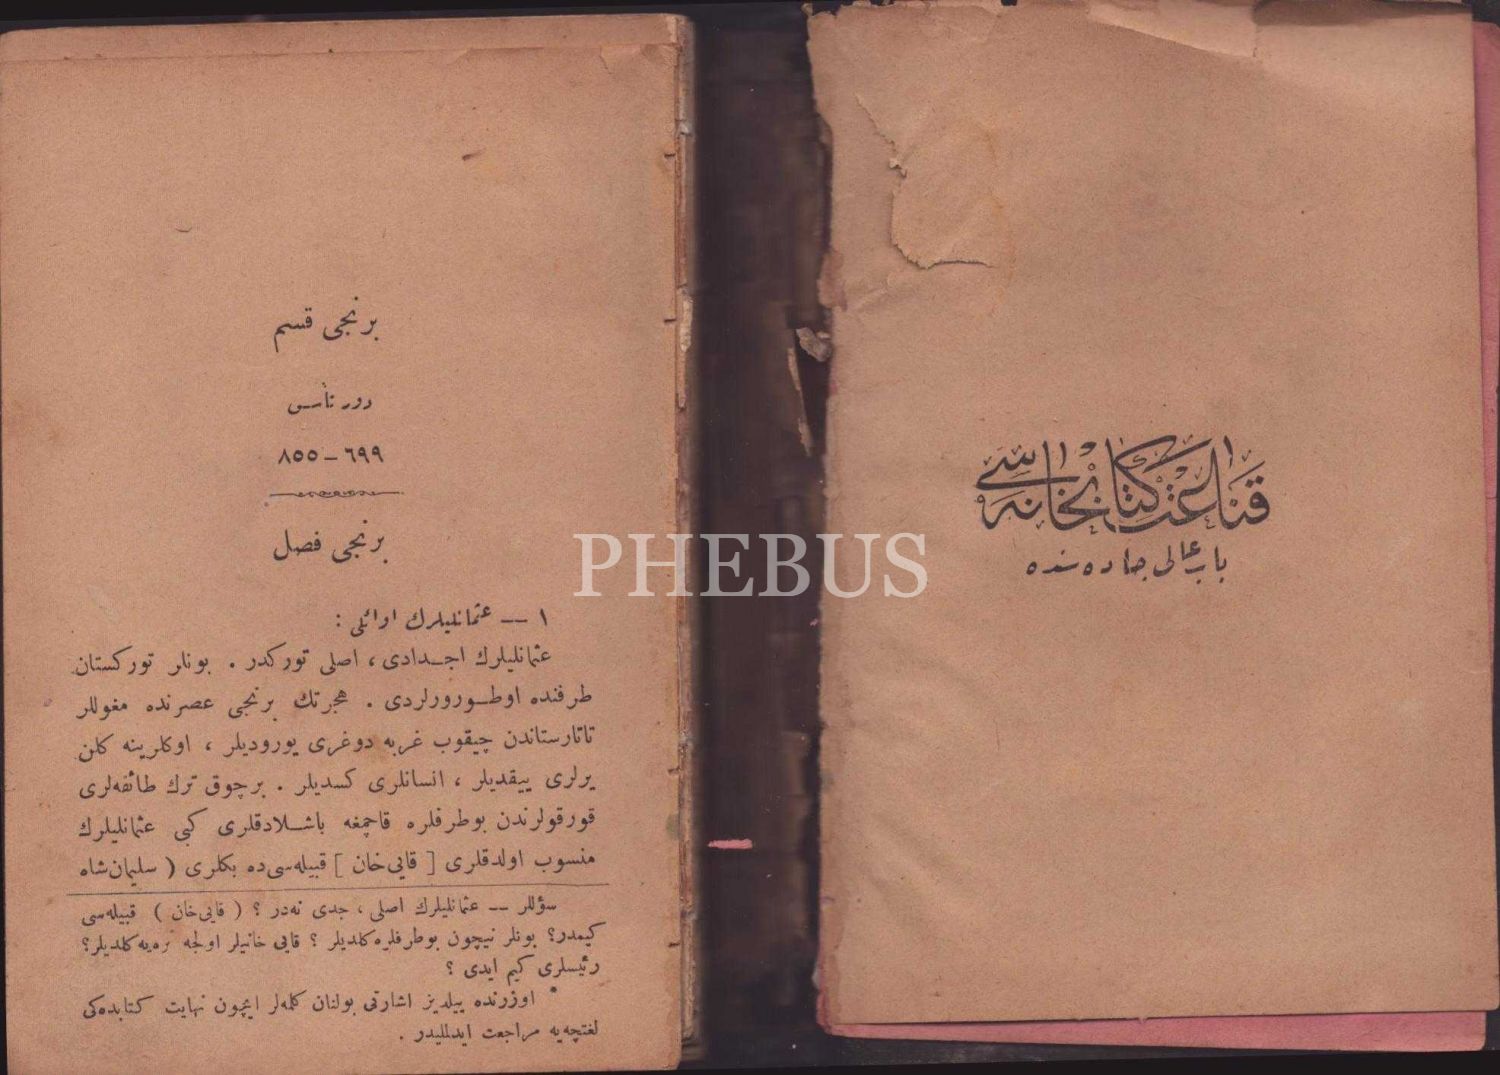 قناعت كتابخانه‌سی
باب عالی جاده سنده
برنجی قسم
دور تأسس
٦٩٩ — ٨٥٥
برنجی فصل
١ — عثمانلیلرك اوائلی :
عثمانلیلرك اجـدادی ، اصلی توركدر . بونلر توركستان
طرفنده اوطـورورلردی . هجرتك برنجی عصرنده مغوللر
تاتارستاندن چیقوب غربه دوغری یورودیلر ، اوكلرینه كلن
یرلری ییقدیلر ، انسانلری كسدیلر . برچوق ترك طائفه‌لری
قورقولرندن بوطرفلره قاچمغه باشـلادقلری كبی عثمانلیلرك
منسوب اولدقلری [ قایی‌خان ] قبیله‌سی‌ده بكلری ( سلیمان‌شاه
سؤللر — عثمانلیلرك اصلی ، جدی نه‌در ؟ ( قایی‌خان ) قبیله‌سی
كیمدر؟ بونلر نیچون بوطرفلره كلدیلر ؟ قایی خانیلر اولجه نره‌یه كلدیلر؟
رئیسلری كیم ایدی ؟
* اوزرنده ییلدیز اشارتی بولنان كلمه‌لر ایچون نهایت كتابده‌كی
لغتچه‌یه مراجعت ایدلملیدر .
PHEBUS